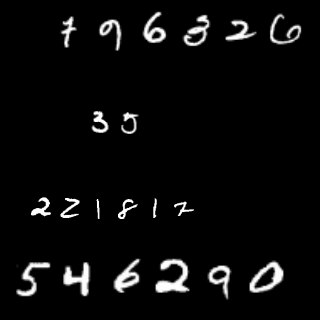 796326
35
221817
546290